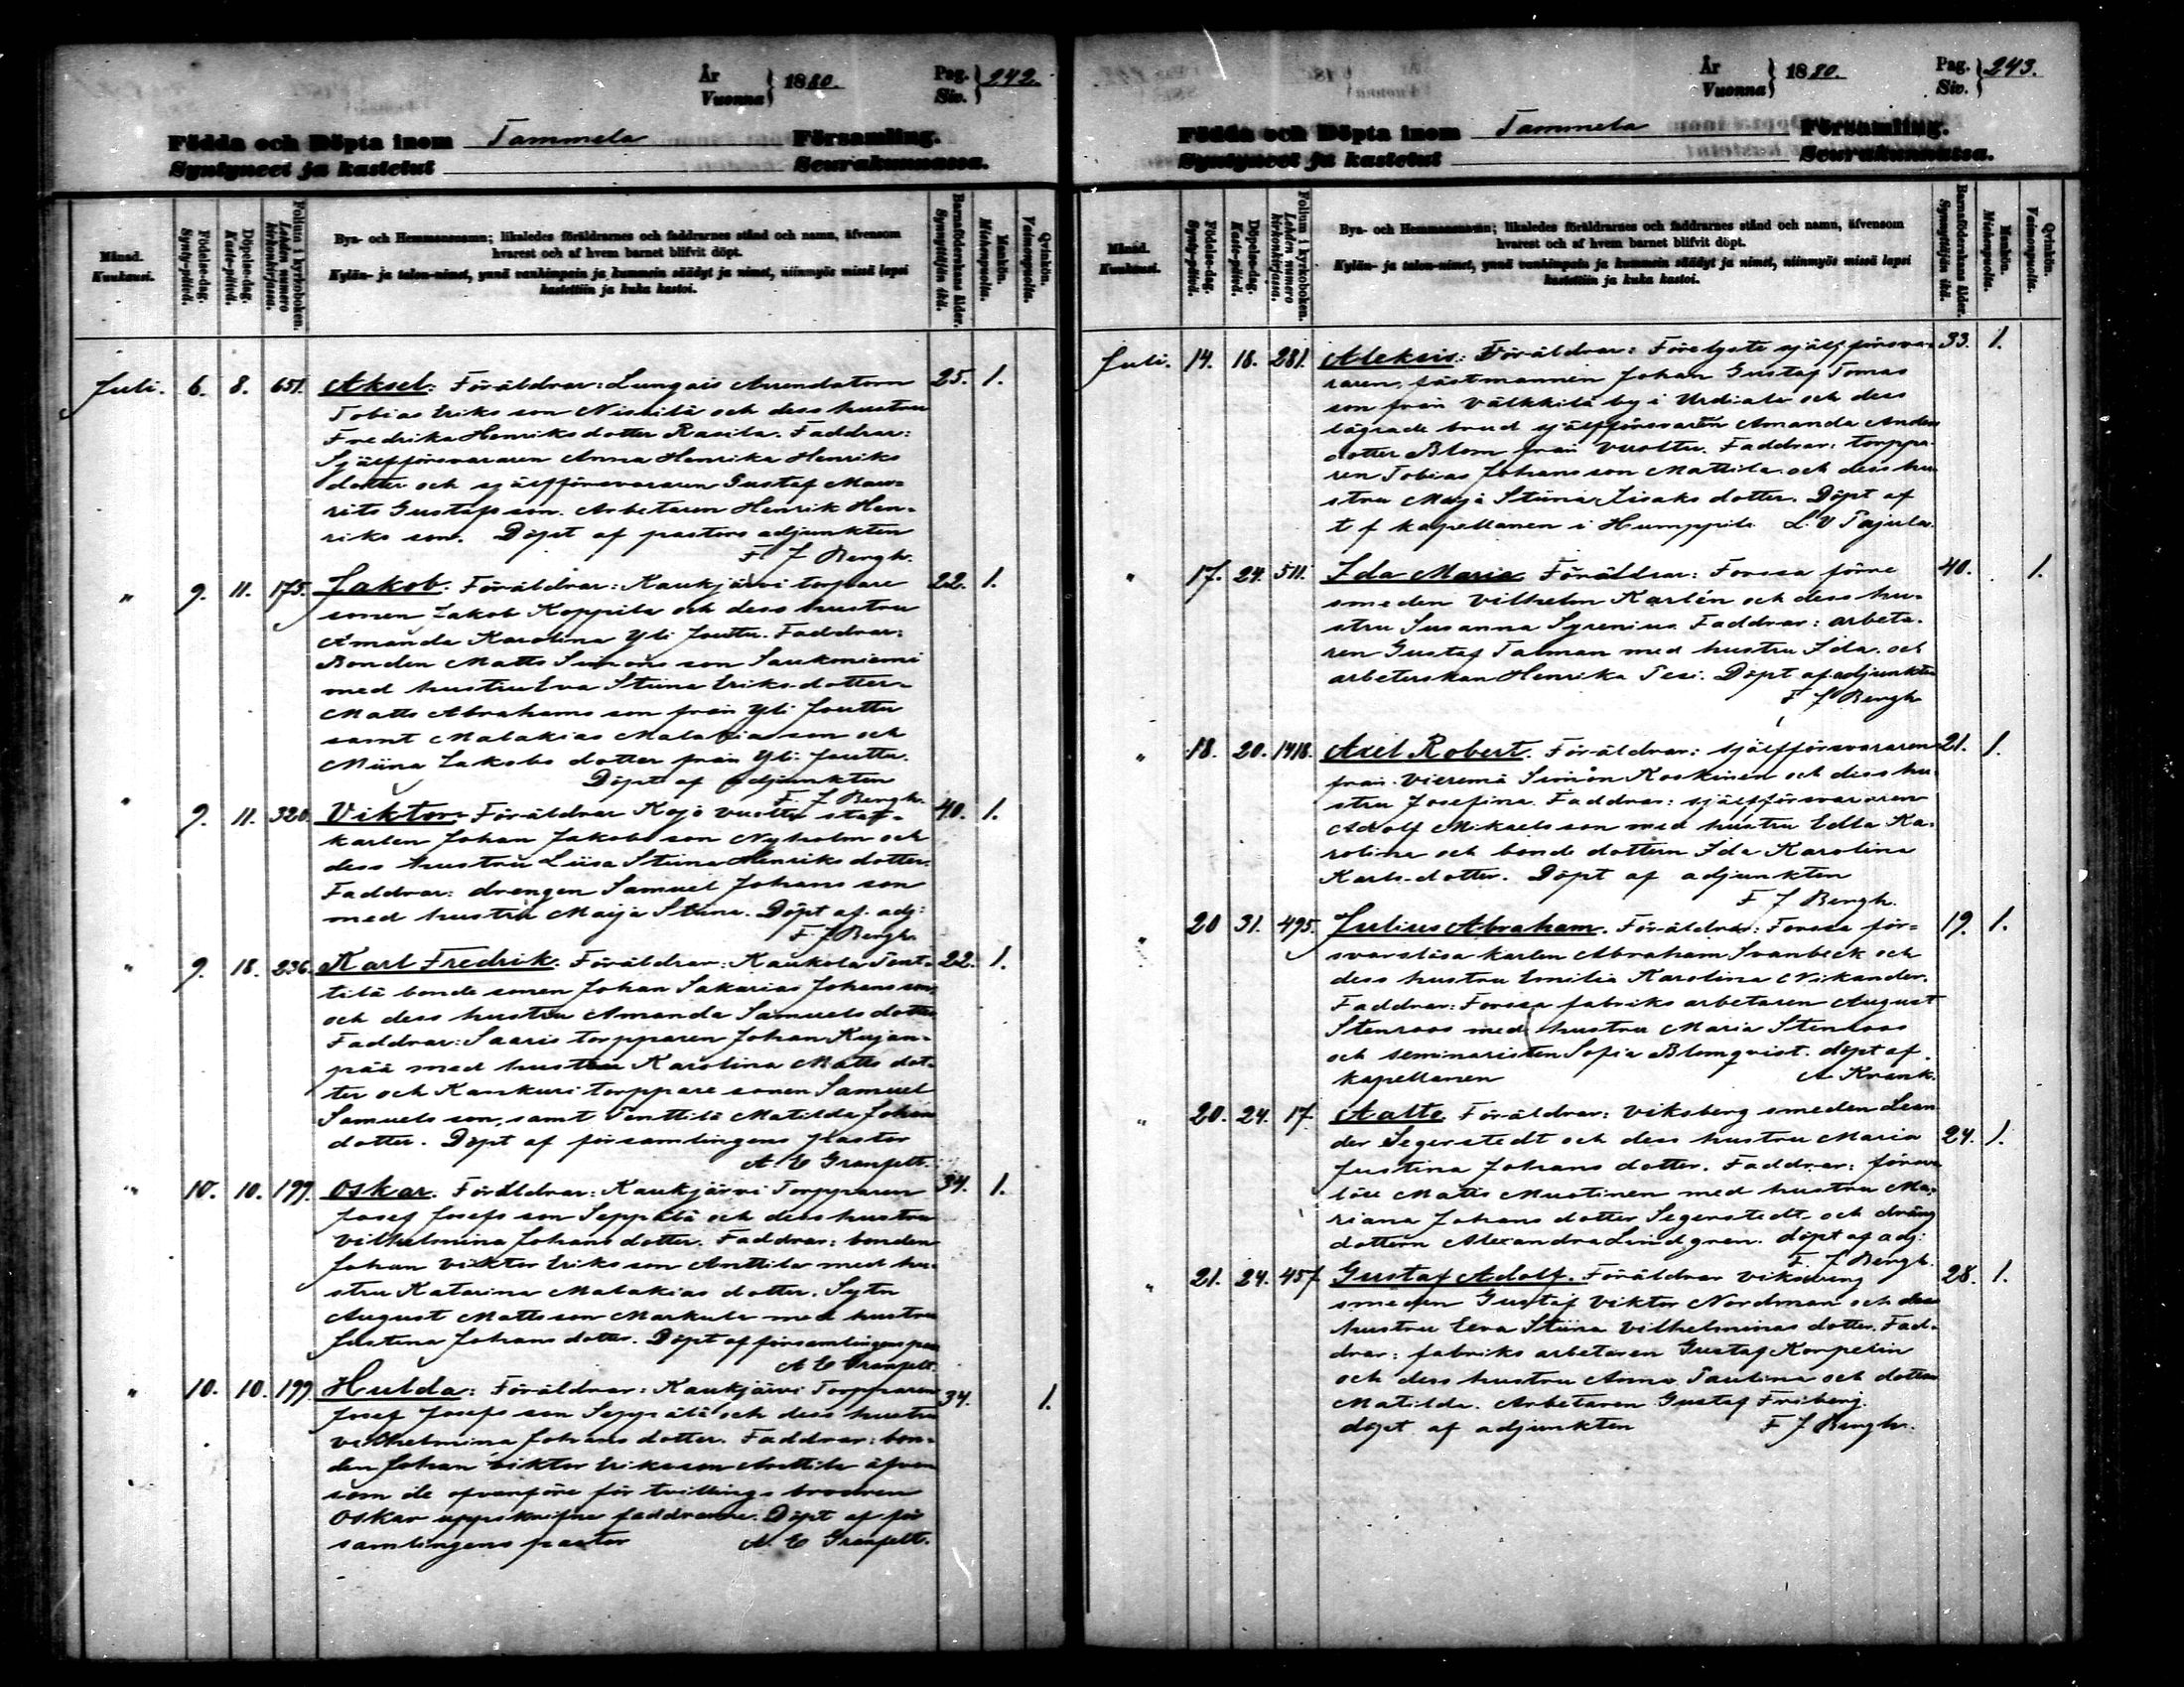 År
Vuonna } 1880.
Pag.
Siv. } 242.
Födda och Döpta inom Tammela Församling.
Syntyneet ja kastetut Seurakunnassa.
Månad.
Kuukausi.
Födelse-dag.
Synty-päivä.
Döpelse-dag.
Kaste-päivä.
Folium i kyrkoboken.
Lehden numero kirkonkirjassa.
Bya- och Hemmansnamn; likaledes föräldrarnes och faddrarnes stånd och namn, äfvensom
hvarest och af hvem barnet blifvit döpt.
Kylän- ja talon-nimet, ynnä vanhimpain ja kummein säädyt ja nimet, niinmyös missä lapsi
kastettiin ja kuka kastoi.
Barnaföderskans ålder.
Synnyttäjän ikä.
Mankön.
Miehenpuolia.
Qvinkön.
Vaimonpuolia.
Juli. 6. 8. 651. Aksel: Föräldrar: Lungois Arrendatorn 25. 1.
Tobias Eriks son Nissilä och dess hustru
Fredrika Henriks dotter Rasila. Faddrar:
Själfförsvararen Anna Henrika Henriks
dotter och själfförsvararen Gustaf Mau-
rits Gustafs son. Arbetaren Henrik Hen-
riks son. Döpt af pastors adjunkten
F. J Bergh.
" 9. 11. 175. Jakob: Föräldrar: Kaukjärvi torpare 22. 1.
sonen Jakob Koppila och dess hustru
Amanda Karolina Yli Joutta. Faddrar:
Bonden Matts Simons son Saukoniemi
med hustru Eva Stina Eriks dotter.
Matts Abrahams son från Yli Joutta
samt Malakias Malakias son och
Miina Jakobs dotter från Yli Joutta.
Döpt af adjunkten
F. J Bergh.
" 9. 11. 320. Viktor: Föräldrar Kojo Vuoltu stat- 40. 1.
karlen Johan Jakobs son Nyholm och
dess hustru Liisa Stina Henriks dotter.
Faddrar: drengen Samuel Johans son
med hustru Maija Stina. Döpt af. adj:
F. J Bergh.
" 9. 18. 236. Karl Fredrik: Föräldrar: Kaukola Pent- 22. 1.
tilä bonde sonen Johan Sakarias Johans son
och dess hustru Amanda Samuels dotter
Faddrar: Saaris torpparen Johan Kujan-
pää med hustru Karolina Matts dot-
ter och Kankuri torppare sonen Samuel
Samuels son, samt Penttilä Matilda Johans
dotter. Döpt af församlingens Pastor
A. E Granfelt.
" 10. 10. 199. Oskar. Föräldrar: Kaukjärvi Torpparen 34. 1.
Josef Josefs son Seppälä och dess hustru
Vilhelmina Johans dotter. Faddrar: bonden
Johan Viktor Eriks son Anttila med hu-
stru Katarina Malakias dotter. Sytn
August Matts son Markula med hustru
Justina Johans dotter. Döpt af församlingens pas
A E Granfelt.
" 10. 10. 199. Hulda: Föräldrar: Kaukjärvi Torpparen 34. 1.
Josef Josefs son Seppälä och dess hustru
Vilhelmina Johans dotter. Faddrar: bon-
den Johan Viktor Eriksson Anttila äfven
som de ofvanföre för tvillings brodren
Oskar uppskrifne faddrarne. Döpt af för
samlingens pastor A. E Granfelt.
År
Vuonna } 1880.
Pag.
Siv. } 243.
Födda och Döpta inom Tammela Församling.
Syntyneet ja kastetut Seurakunnassa.
Månad.
Kuukausi.
Födelse-dag.
Synty-päivä.
Döpelse-dag.
Kaste-päivä.
Folium i kyrkoboken.
Lehden numero kirkonkirjassa.
Bya- och Hemmansnamn; likaledes föräldrarnes och faddrarnes stånd och namn, äfvensom
hvarest och af hvem barnet blifvit döpt.
Kylän- ja talon-nimet, ynnä vanhimpain ja kummein säädyt ja nimet, niinmyös missä lapsi
kastettiin ja kuka kastoi.
Barnaföderskans ålder.
Synnyttäjän ikä.
Mankön.
Miehenpuolia.
Qvinkön.
Vaimonpuolia.
Juli. 14. 18. 281. Aleksis: Föräldrar: Förelyste själfförsva- 33. 1.
raren, fästmannen Johan Gustaf Tomas
son från Välkkilä by i Urdiala och dess
lägrade brud själfförsvaren Amanda Anders
dotter Blom från Vuoltu. Faddrar: torppa-
ren Tobias Johans son Mattila. och dess hu
stru Maija Stiina Iisaks dotter. Döpt af
t f kapellanen i Humppila L. V Pajula.
" 17. 24. 511. Ida Maria Föräldrar: Forssa förre 40. 1.
smeden Vilhelm Karlén och dess hu-
stru Susanna Syrenius. Faddrar: arbeta-
ren Gustaf Talman med hustru Ida. och
arbeterskan Henrika Pesi. Döpt af adjunkten
F J Bergh
" 18. 20. 1418. Axel Robert. Föräldrar: själfförsvararen 21. 1.
från Vieremä Simon Koskinen och dess hu-
stru Josefina. Faddrar: själfförsvararen
Adolf Mikaels son med hustru Edla Ka-
rolina och bonde dottern Ida Karolina
Karls-dotter. Döpt af adjunkten
F J Bergh.
" 20 31. 495. Julius Abraham. Föräldrar: Forssa för- 19. 1.
svarslösa karlen Abraham Svanbeck och
dess hustru Emilia Karolina Nikander.
Faddrar: Forssa fabriks arbetaren August
Stenroos med hustru Maria Stenroos
och seminaristen Sofia Blomqvist. döpt af
kapellanen A Krank.
" 20. 24. 17. Aalto. Föräldrar: Viksberg smeden Lean
der Segerstedt och dess hustru Maria 24. 1.
Justina Johans dotter. Faddrar: försva
löse Matts Mustinen med hustru Ma-
riana Johans dotter Segerstedt. och dräng
dottern Alexandra Lindgren. döpt af adj:
F. J Bergh.
" 21. 24. 457 Gustaf Adolf. Föräldrar Viksberg 28. 1.
smeden Gustaf Viktor Nordman och dess
hustru Eeva Stiina Vilhelminas dotter. Fad-
drar: fabriks arbetaren Gustaf Korpelin
och dess hustru Anna Paulina och dotter
Matilda. Arbetaren Gustaf Friberg.
döpt af adjunkten F J Bergh.